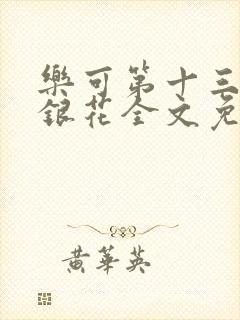 樂可第十三
銀花全文免
黄華英